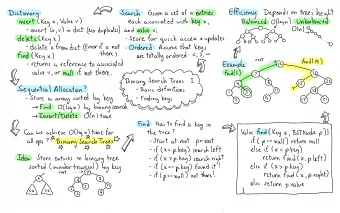 Dictionary
insert(Key x, Value v)
- insert (x,v) in dict (No duplicates)
delete(Key x)
- delete x from dict (Error if x not there)
find(Key x)
- returns a reference to associated
value v, or null if not there.
Search: Given a set of n entries
each associated with key x,
and value v.
- Store for quick access + updates
- Ordered: Assume that keys
are totally ordered: <, >, =
Efficiency: Depends on tree's height
Balanced: O(log n) Unbalanced:
O(n)
Sequential Allocation?
- Store in array sorted by key
→ Find: O(log n) by binary search
→ Insert/Delete: O(n) time
Binary Search Trees I
- Basic definitions
- Finding keys
Example:
find(5)
root
find(14)
Can we achieve O(log n) time for
all ops? Binary Search Trees
Idea: Store entries in binary tree
sorted (inorder traversal) by key
root
Find: How to find a key in
the tree?
- Start at root p←root
- if (x < p.key) search left
- if (x > p.key) search right
- if (x == p.key) found it!
- if (p == null) not there!
Value find(Key x, BSTNode p) {
if (p == null) return null
else if (x < p.key)
return find(x, p.left)
else if (x > p.key)
return find(x, p.right)
else return p.value